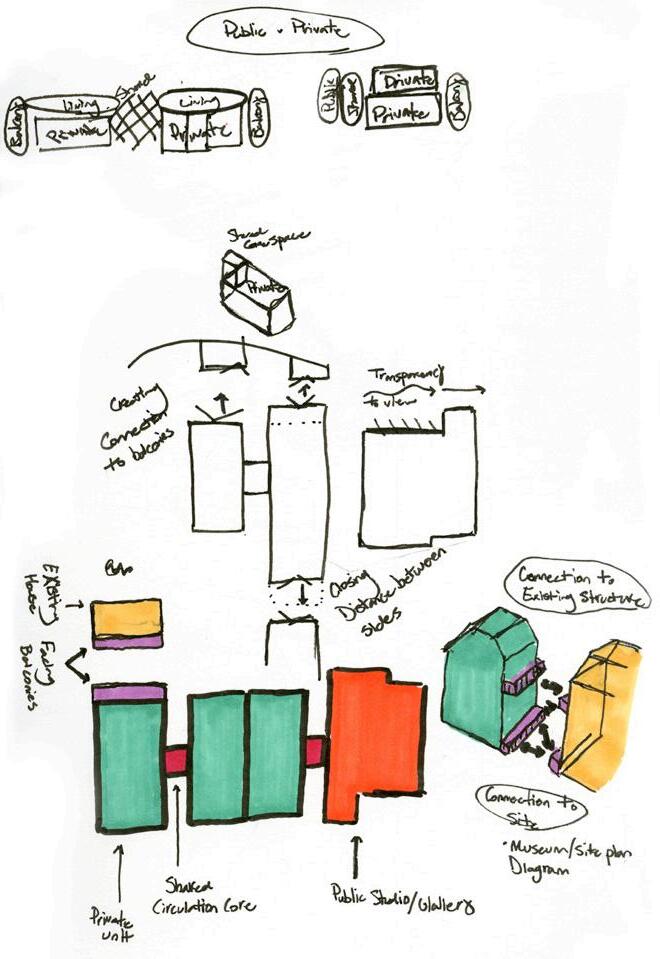 Public + Private
Living
Shared
Living
Balcony
Private
Private
Balcony
Public
Shared
Private
Private
Balcony
Shared
Private
Creating
Connection
to balconies
Transparency
to view
Closing
Distance between
sides
Existing
House
Facing
Balconies
Connection to
Existing Structure
Connection to
Site
• Museum/site plan
Diagram
Shared
Circulation Core
Private
unit
Public Studio/Gallery